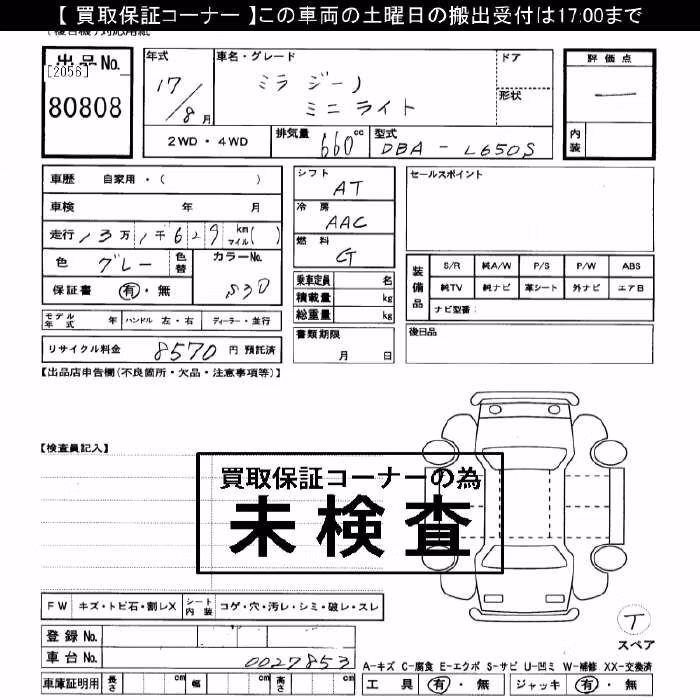 【 買取保証コーナー 】この車両の土曜日の搬出受付は17:00まで
出品No.
[2056]
80808
年式
17/8月
車名・グレード
ミラ ジーノ
ミニライト
ドア
形状
評価点
—
内装
2WD・4WD
排気量 660cc
型式 DBA - L650S
車歴 自家用・( )
車検 年 月
走行 13万1千629km マイル( )
色 グレー 色替 カラーNo. S30
保証書 有・無
シフト AT
冷房 AAC
燃料 G
乗車定員 名
積載量 kg
総重量 kg
書類期限 月 日
セールスポイント
装備品
S/R 純A/W P/S P/W ABS
純TV 純ナビ 革シート 外ナビ エアB
ナビ型番:
後日品
モデル年式 年 ハンドル 左・右 ディーラー・並行
リサイクル料金 8570 円 預託済
【出品店申告欄(不良箇所・欠品・注意事項等)】
【検査員記入】
買取保証コーナーの為
未検査
FW キズ・トビ石・割レX シート内装 コゲ・穴・汚レ・シミ・破レ・スレ
登録No.
車台No. 0027853
車庫証明用 長さ cm 幅 cm 高さ cm
T
スペア
A-キズ C-腐食 E-エクボ S-サビ U-凹ミ W-補修 XX-交換済
工具 有・無 ジャッキ 有・無